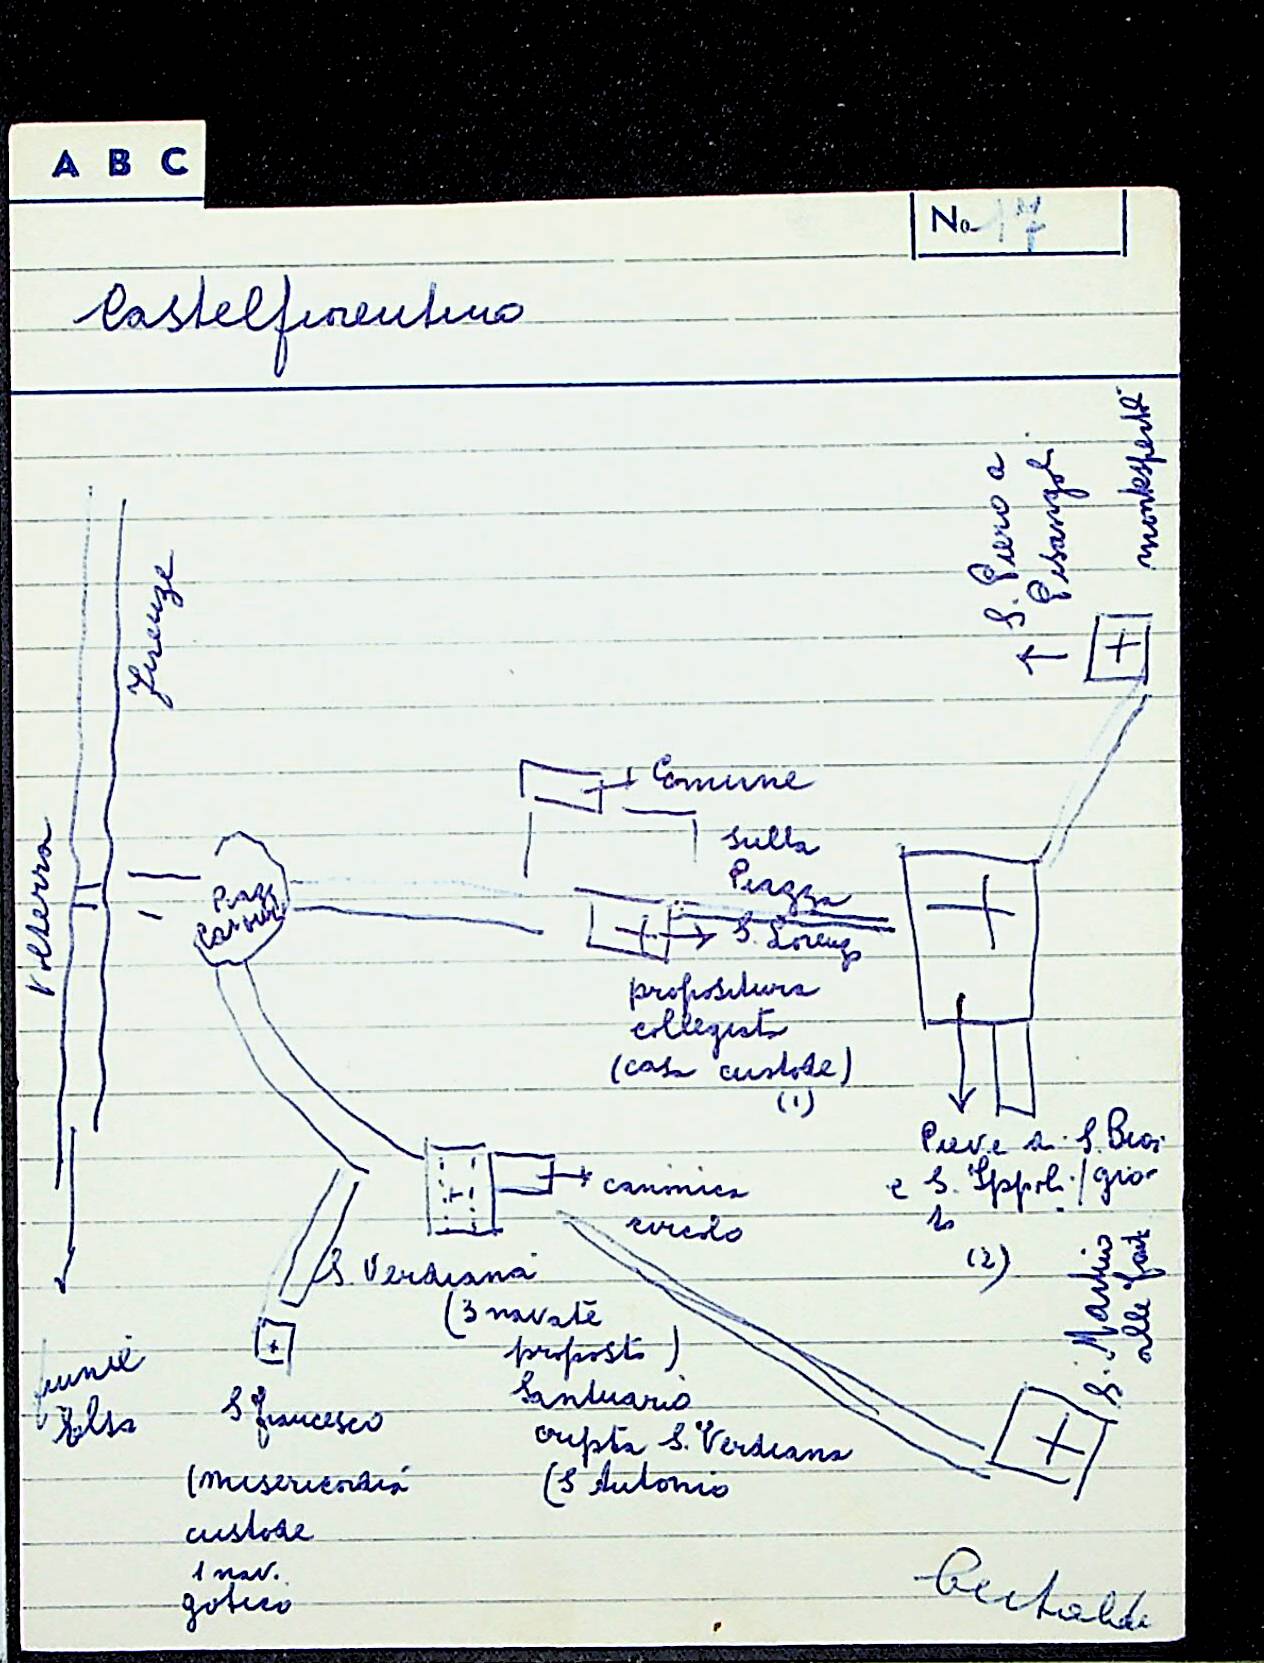 A B C
No 17
Castelfiorentino
S. Piero a
Pisangoli
Montespertoli
Firenze
Volterra
Comune
sulla
Piazza
Piazza
Cavour
S. Lorenzo
propositura
collegiata
(casa custode)
(1)
Pieve a S. Bia-
e S. Ippoli- / gio
to
(2)
canonica
circolo
S. Verdiana
(3 navate
proposto)
Santuario
cripta S. Verdiana
(S Antonio
fiume
Elsa
S Francesco
(Misericordia
custode
1 nav.
gotico
S. Martino
alle
Certaldo